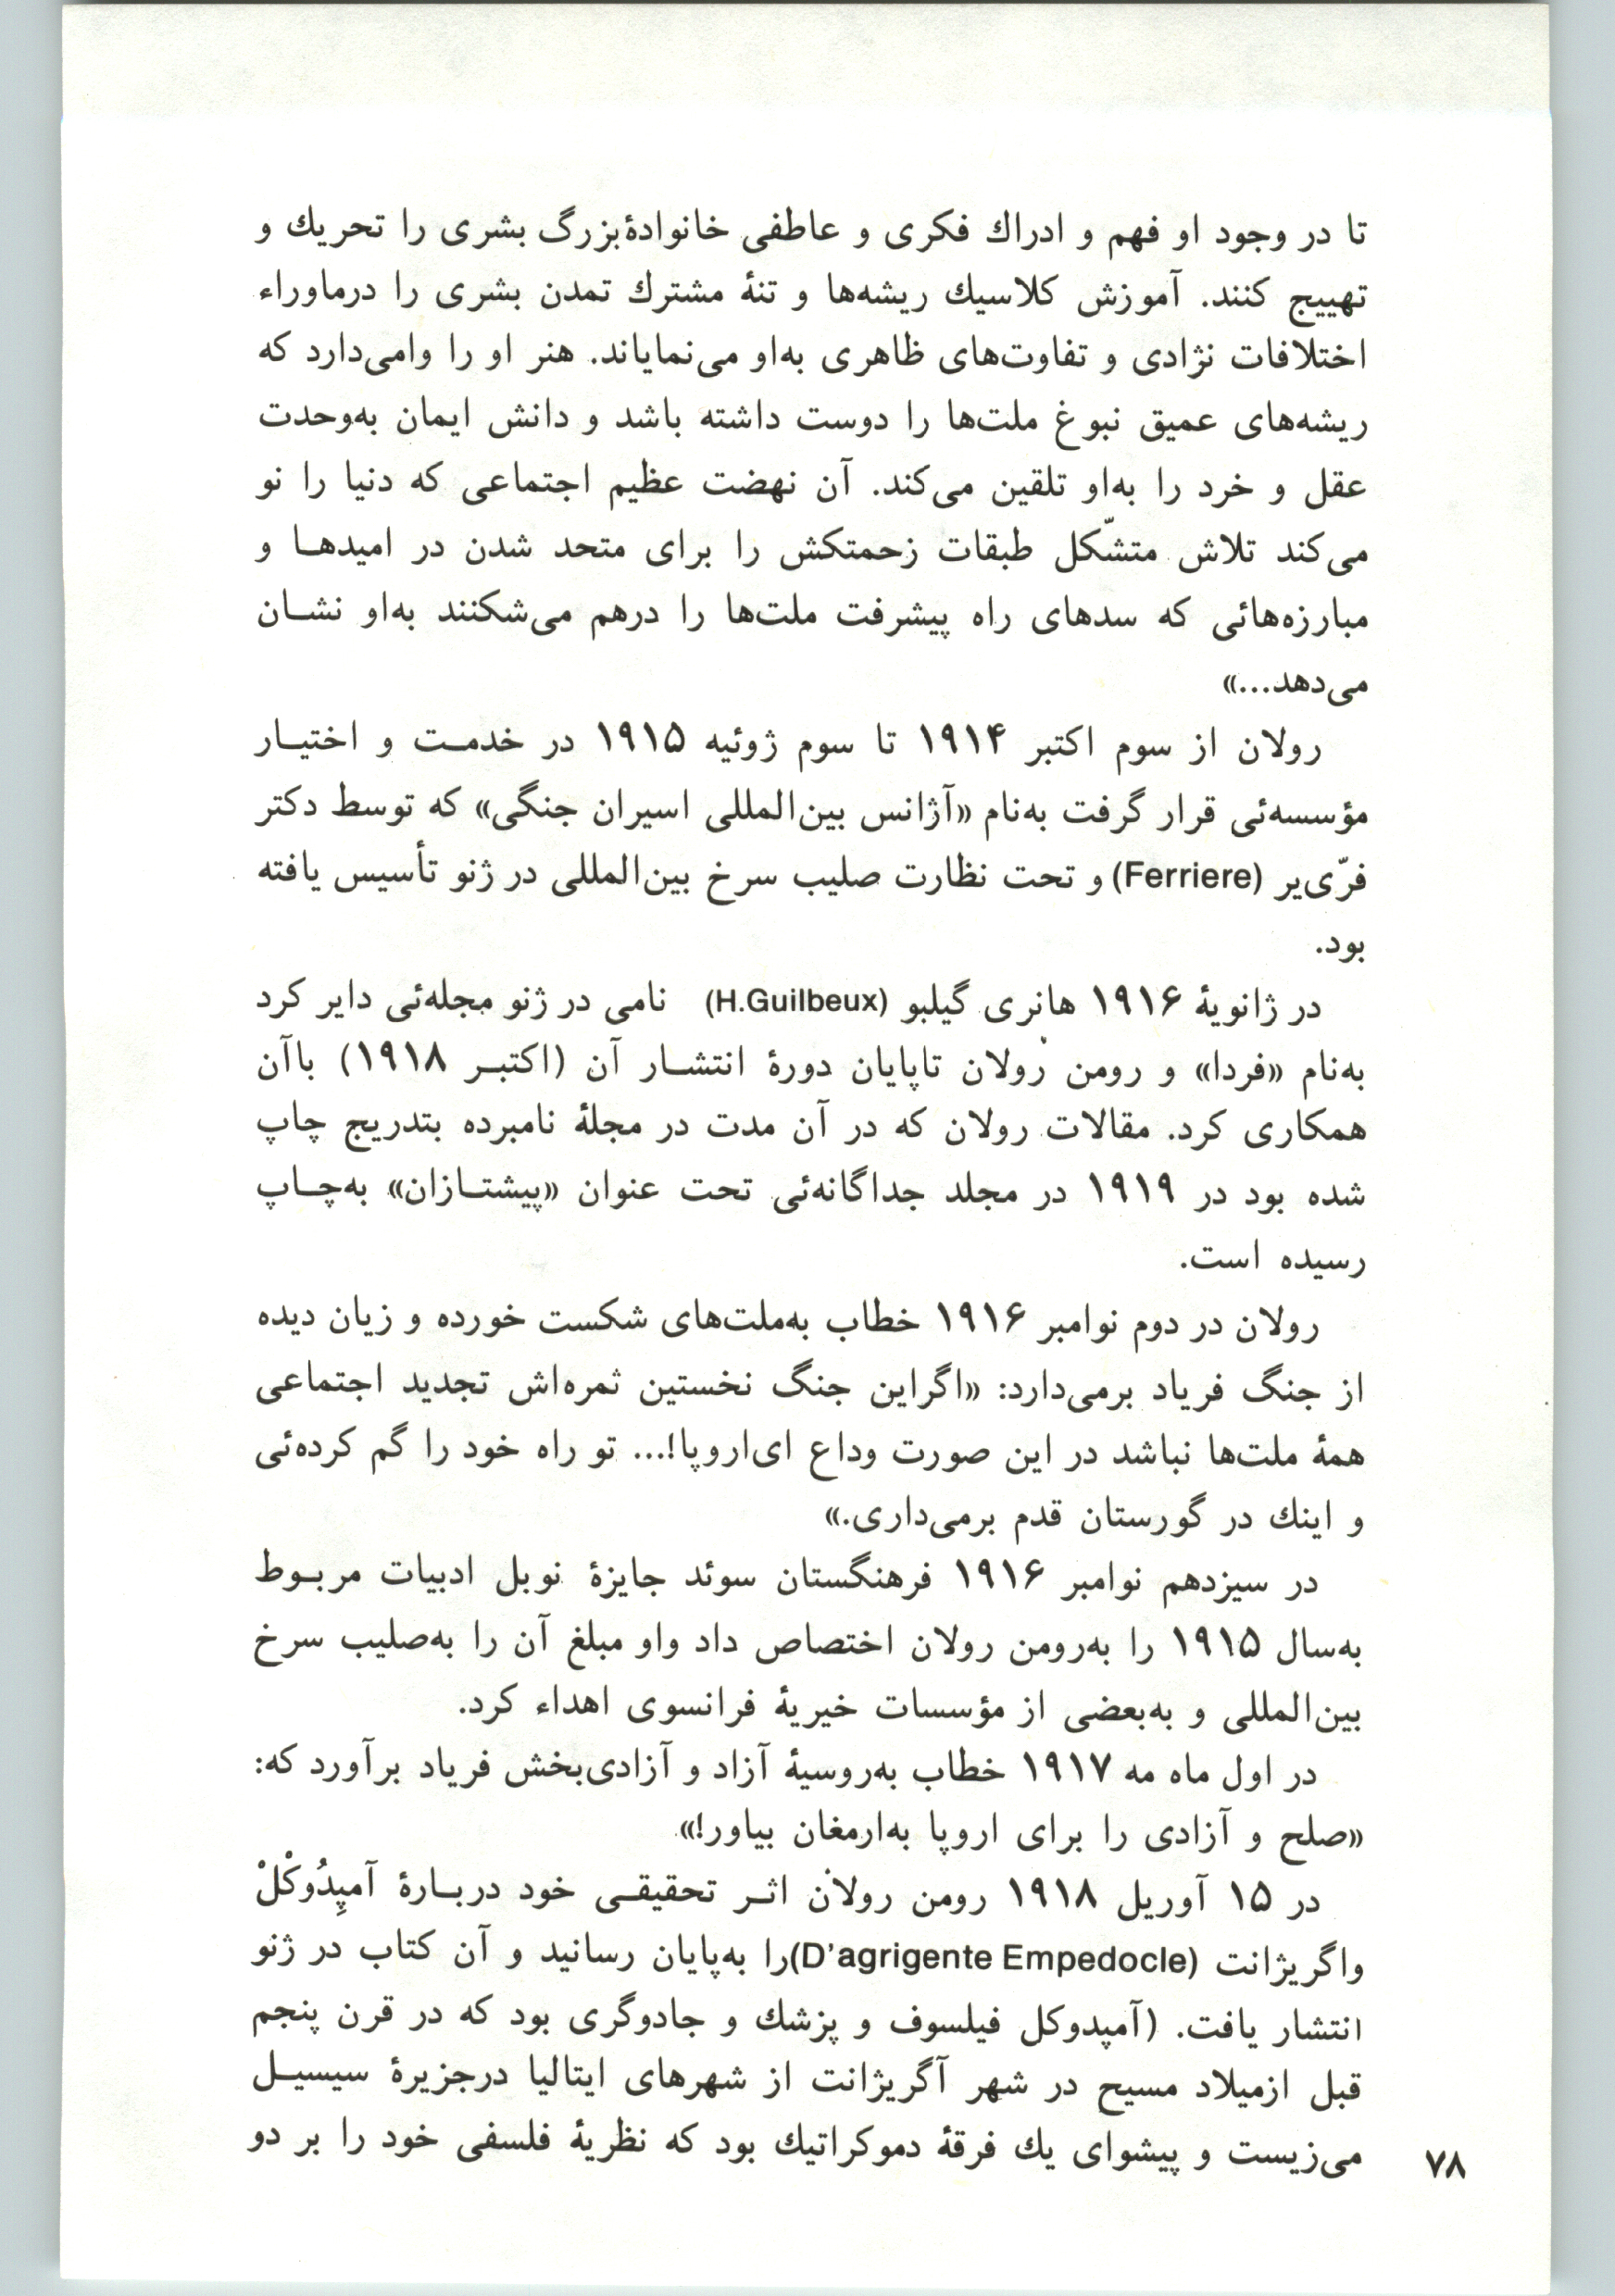 تا در وجود او فهم و ادراك فکری و عاطفی خانوادهٔ‌بزرگ بشری را تحریك و
تهییج کنند. آموزش کلاسیك ریشه‌ها و تنهٔ مشترك تمدن بشری را درماوراء
اختلافات نژادی و تفاوت‌های ظاهری به‌او می‌نمایاند. هنر او را وامی‌دارد که
ریشه‌های عمیق نبوغ ملت‌ها را دوست داشته باشد و دانش ایمان به‌وحدت
عقل و خرد را به‌او تلقین می‌کند. آن نهضت عظیم اجتماعی که دنیا را نو
می‌کند تلاش متشّکل طبقات زحمتکش را برای متحد شدن در امیدهـا و
مبارزه‌هائی که سدهای راه پیشرفت ملت‌ها را درهم می‌شکنند به‌او نشـان
می‌دهد...»
رولان از سوم اکتبر ۱۹۱۴ تا سوم ژوئیه ۱۹۱۵ در خدمـت و اختیـار
مؤسسه‌ئی قرار گرفت به‌نام «آژانس بین‌المللی اسیران جنگی» که توسط دکتر
فرّی‌یر (Ferriere) و تحت نظارت صلیب سرخ بین‌المللی در ژنو تأسیس یافته
بود.
در ژانویهٔ ۱۹۱۶ هانری گیلبو (H.Guilbeux) نامی در ژنو مجله‌ئی دایر کرد
به‌نام «فردا» و رومن رولان تاپایان دورهٔ انتشـار آن (اکتبـر ۱۹۱۸) باآن
همکاری کرد. مقالات رولان که در آن مدت در مجلهٔ نامبرده بتدریج چاپ
شده بود در ۱۹۱۹ در مجلد جداگانه‌ئی تحت عنوان «پیشتـازان» به‌چـاپ
رسیده است.
رولان در دوم نوامبر ۱۹۱۶ خطاب به‌ملت‌های شکست خورده و زیان دیده
از جنگ فریاد برمی‌دارد: «اگراین جنگ نخستین ثمره‌اش تجدید اجتماعی
همهٔ ملت‌ها نباشد در این صورت وداع ای‌اروپا!... تو راه خود را گم کرده‌ئی
و اینك در گورستان قدم برمی‌داری.»
در سیزدهم نوامبر ۱۹۱۶ فرهنگستان سوئد جایزهٔ نوبل ادبیات مربـوط
به‌سال ۱۹۱۵ را به‌رومن رولان اختصاص داد واو مبلغ آن را به‌صلیب سرخ
بین‌المللی و به‌بعضی از مؤسسات خیریهٔ فرانسوی اهداء کرد.
در اول ماه مه ۱۹۱۷ خطاب به‌روسیهٔ آزاد و آزادی‌بخش فریاد برآورد که:
«صلح و آزادی را برای اروپا به‌ارمغان بیاور!»
در ۱۵ آوریل ۱۹۱۸ رومن رولان اثـر تحقیقـی خود دربـارهٔ آمپِدُوکْلْ
واگریژانت (D’agrigente Empedocle)را به‌پایان رسانید و آن کتاب در ژنو
انتشار یافت. (آمپدوکل فیلسوف و پزشك و جادوگری بود که در قرن پنجم
قبل ازمیلاد مسیح در شهر آگریژانت از شهرهای ایتالیا درجزیرهٔ سیسیـل
می‌زیست و پیشوای یك فرقهٔ دموکراتیك بود که نظریهٔ فلسفی خود را بر دو
۷۸